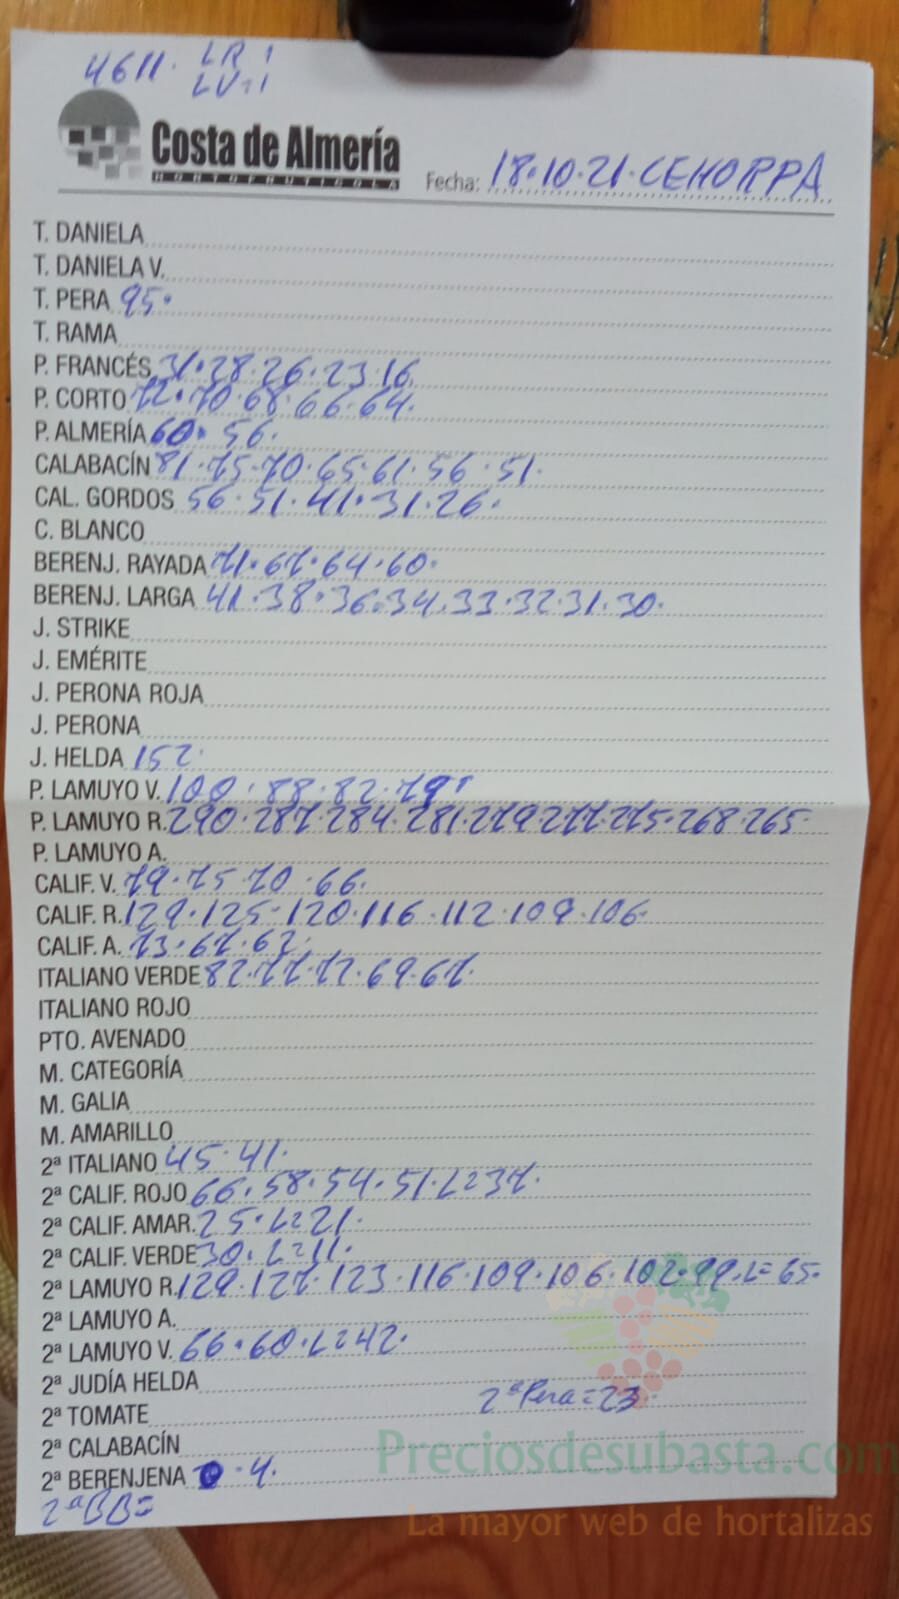 4611. LR 1
LV=1
Costa de Almería
HORTOFRUTICOLA
Fecha: 18.10.21.CEHORPA
T. DANIELA
T. DANIELA V.
T. PERA 95.
T. RAMA
P. FRANCÉS 31.28.26.23.16
P. CORTO 72.70.68.66.64.
P. ALMERÍA 60.56.
CALABACÍN 81.75.70.65.61.56.51.
CAL. GORDOS 56.51.41.31.26.
C. BLANCO
BERENJ. RAYADA 71.67.64.60.
BERENJ. LARGA 41.38.36.34.33.32.31.30.
J. STRIKE
J. EMÉRITE
J. PERONA ROJA
J. PERONA
J. HELDA 152.
P. LAMUYO V. 100.88.82.79.
P. LAMUYO R. 290.287.284.281.279.277.275.268.265.
P. LAMUYO A.
CALIF. V. 79.75.70.66.
CALIF. R. 129.125.120.116.112.109.106.
CALIF. A. 73.67.63.
ITALIANO VERDE 82.77.72.69.67.
ITALIANO ROJO
PTO. AVENADO
M. CATEGORÍA
M. GALIA
M. AMARILLO
2ª ITALIANO 45.41.
2ª CALIF. ROJO 66.58.54.51.L=37.
2ª CALIF. AMAR. 25.L=21.
2ª CALIF. VERDE 30.L=11.
2ª LAMUYO R. 129.127.123.116.109.106.102.99.L=65.
2ª LAMUYO A.
2ª LAMUYO V. 66.60.L=42.
2ª JUDÍA HELDA
2ª Pera=23.
2ª TOMATE
2ª CALABACÍN
Preciosdesubasta.com
2ª BERENJENA .4.
2ªBB=
La mayor web de hortalizas